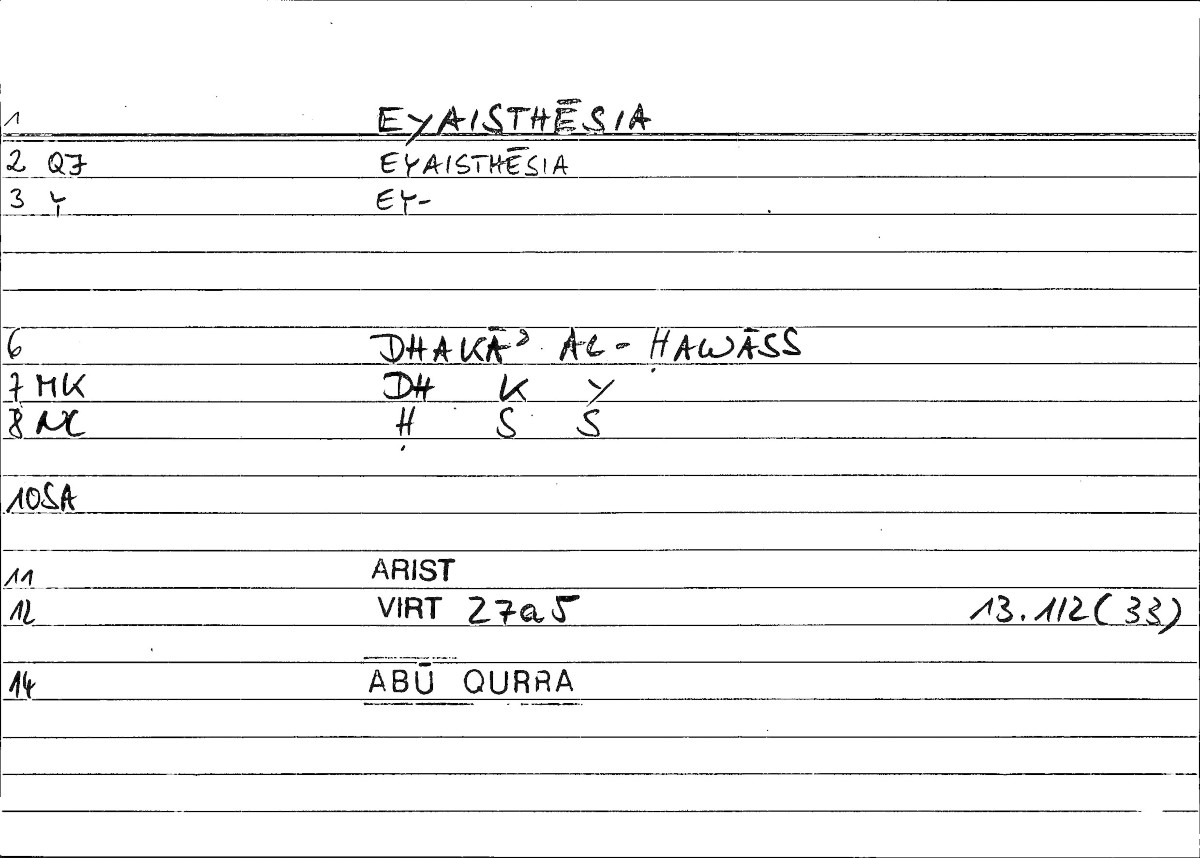 1 EYAISTHĒSIA
2 QJ EYAISTHĒSIA
3 Y EY-
6 DHAKĀʾ AL-ḤAWĀSS
7 MK DH K Y
8 NC Ḥ S S
10 SA
11 ARIST
12 VIRT 27a5 13.112(33)
14 ABŪ QURRA